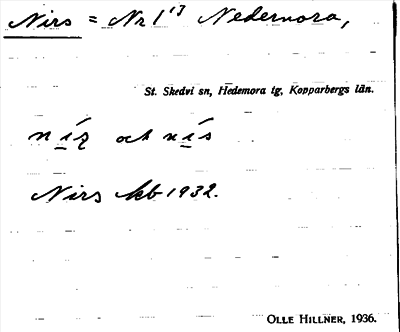 Nirs = Nr 1¹³ Nedernora,
St. Skedvi sn, Hedemora tg, Kopparbergs län.
níʂ och nís
Nirs kb 1932.
OLLE HILLNER, 1936.